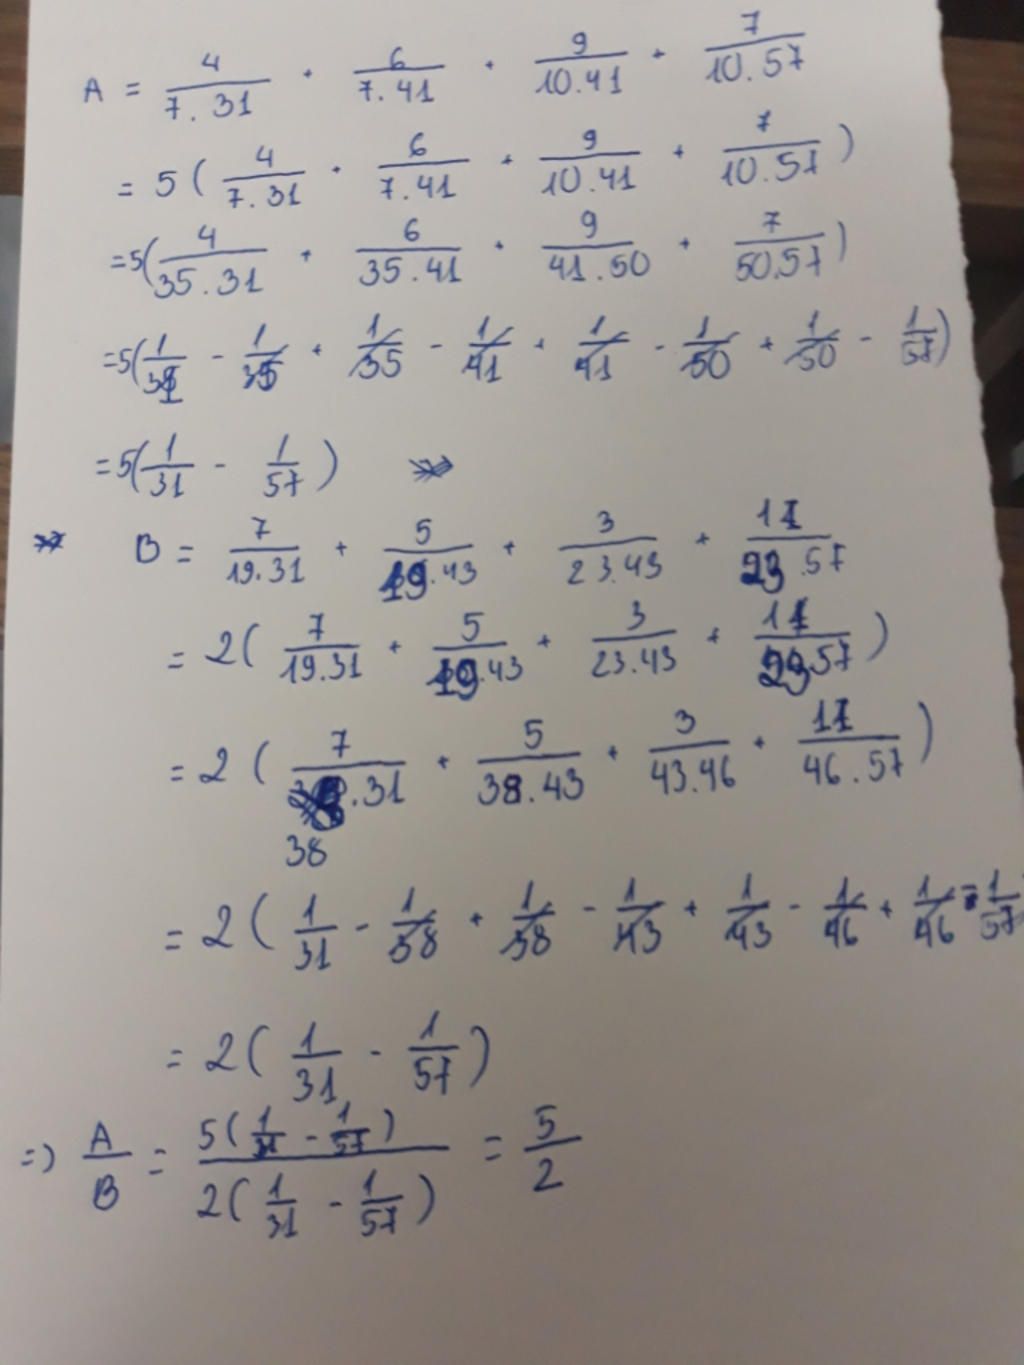 A = 4/7.31 + 6/7.41 + 9/10.41 + 7/10.57
= 5 ( 4/7.31 + 6/7.41 + 9/10.41 + 7/10.57 )
= 5( 4/35.31 + 6/35.41 + 9/41.50 + 7/50.57 )
= 5( 1/31 - 1/35 + 1/35 - 1/41 + 1/41 - 1/50 + 1/50 - 1/57 )
= 5( 1/31 - 1/57 )
B = 7/19.31 + 5/19.43 + 3/23.43 + 11/23.57
= 2 ( 7/19.31 + 5/19.43 + 3/23.43 + 11/23.57 )
= 2 ( 7/38.31 + 5/38.43 + 3/43.46 + 11/46.57 )
= 2 ( 1/31 - 1/38 + 1/38 - 1/43 + 1/43 - 1/46 + 1/46 - 1/57
= 2 ( 1/31 - 1/57 )
=) A/B = 5( 1/31 - 1/57 ) / 2( 1/31 - 1/57 ) = 5/2